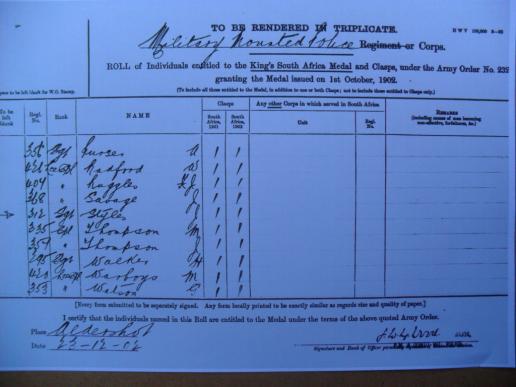 TO BE RENDERED IN TRIPLICATE.
Military Mounted Police Regiment or Corps.
ROLL of Individuals entitled to the King's South Africa Medal and Clasps, under the Army Order No. 232
granting the Medal issued on 1st October, 1902.
(To include all those entitled to the Medal, in addition to one or both Clasps; not to include those entitled to Clasps only.)
Regl. No. Rank NAME Clasps South Africa, 1901 South Africa, 1902 Any other Corps in which served in South Africa Unit Regl. No. REMARKS
(including names of men becoming non-effective, forfeitures, &c.)
Sgt A / /
Radford W / /
404 " Ruggles F J / /
368 " Savage J / /
312 Sgt Styles J / /
335 Cpl Thompson M / /
354 " Thompson J / /
295 Sgt Walker H / /
420 Warboys M / /
353 " Watson C / /
[Every form submitted to be separately signed. Any form locally printed to be exactly similar as regards size and quality of paper.]
I certify that the individuals named in this Roll are entitled to the Medal under the terms of the above quoted Army Order.
Place Aldershot
Date 23-12-02
Signature and Rank of Officer